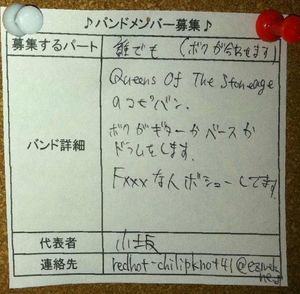 ♪バンドメンバー募集♪
募集するパート 誰でも (ボクが合わせます)
Queens Of The Stoneage
のコピバン.
バンド詳細 ボクがギターかベースか
ドラムをします.
Fxxxな人ボシューしてます
代表者 小坂
連絡先 redhot-chilipkhot41@ezweb
ne.jp